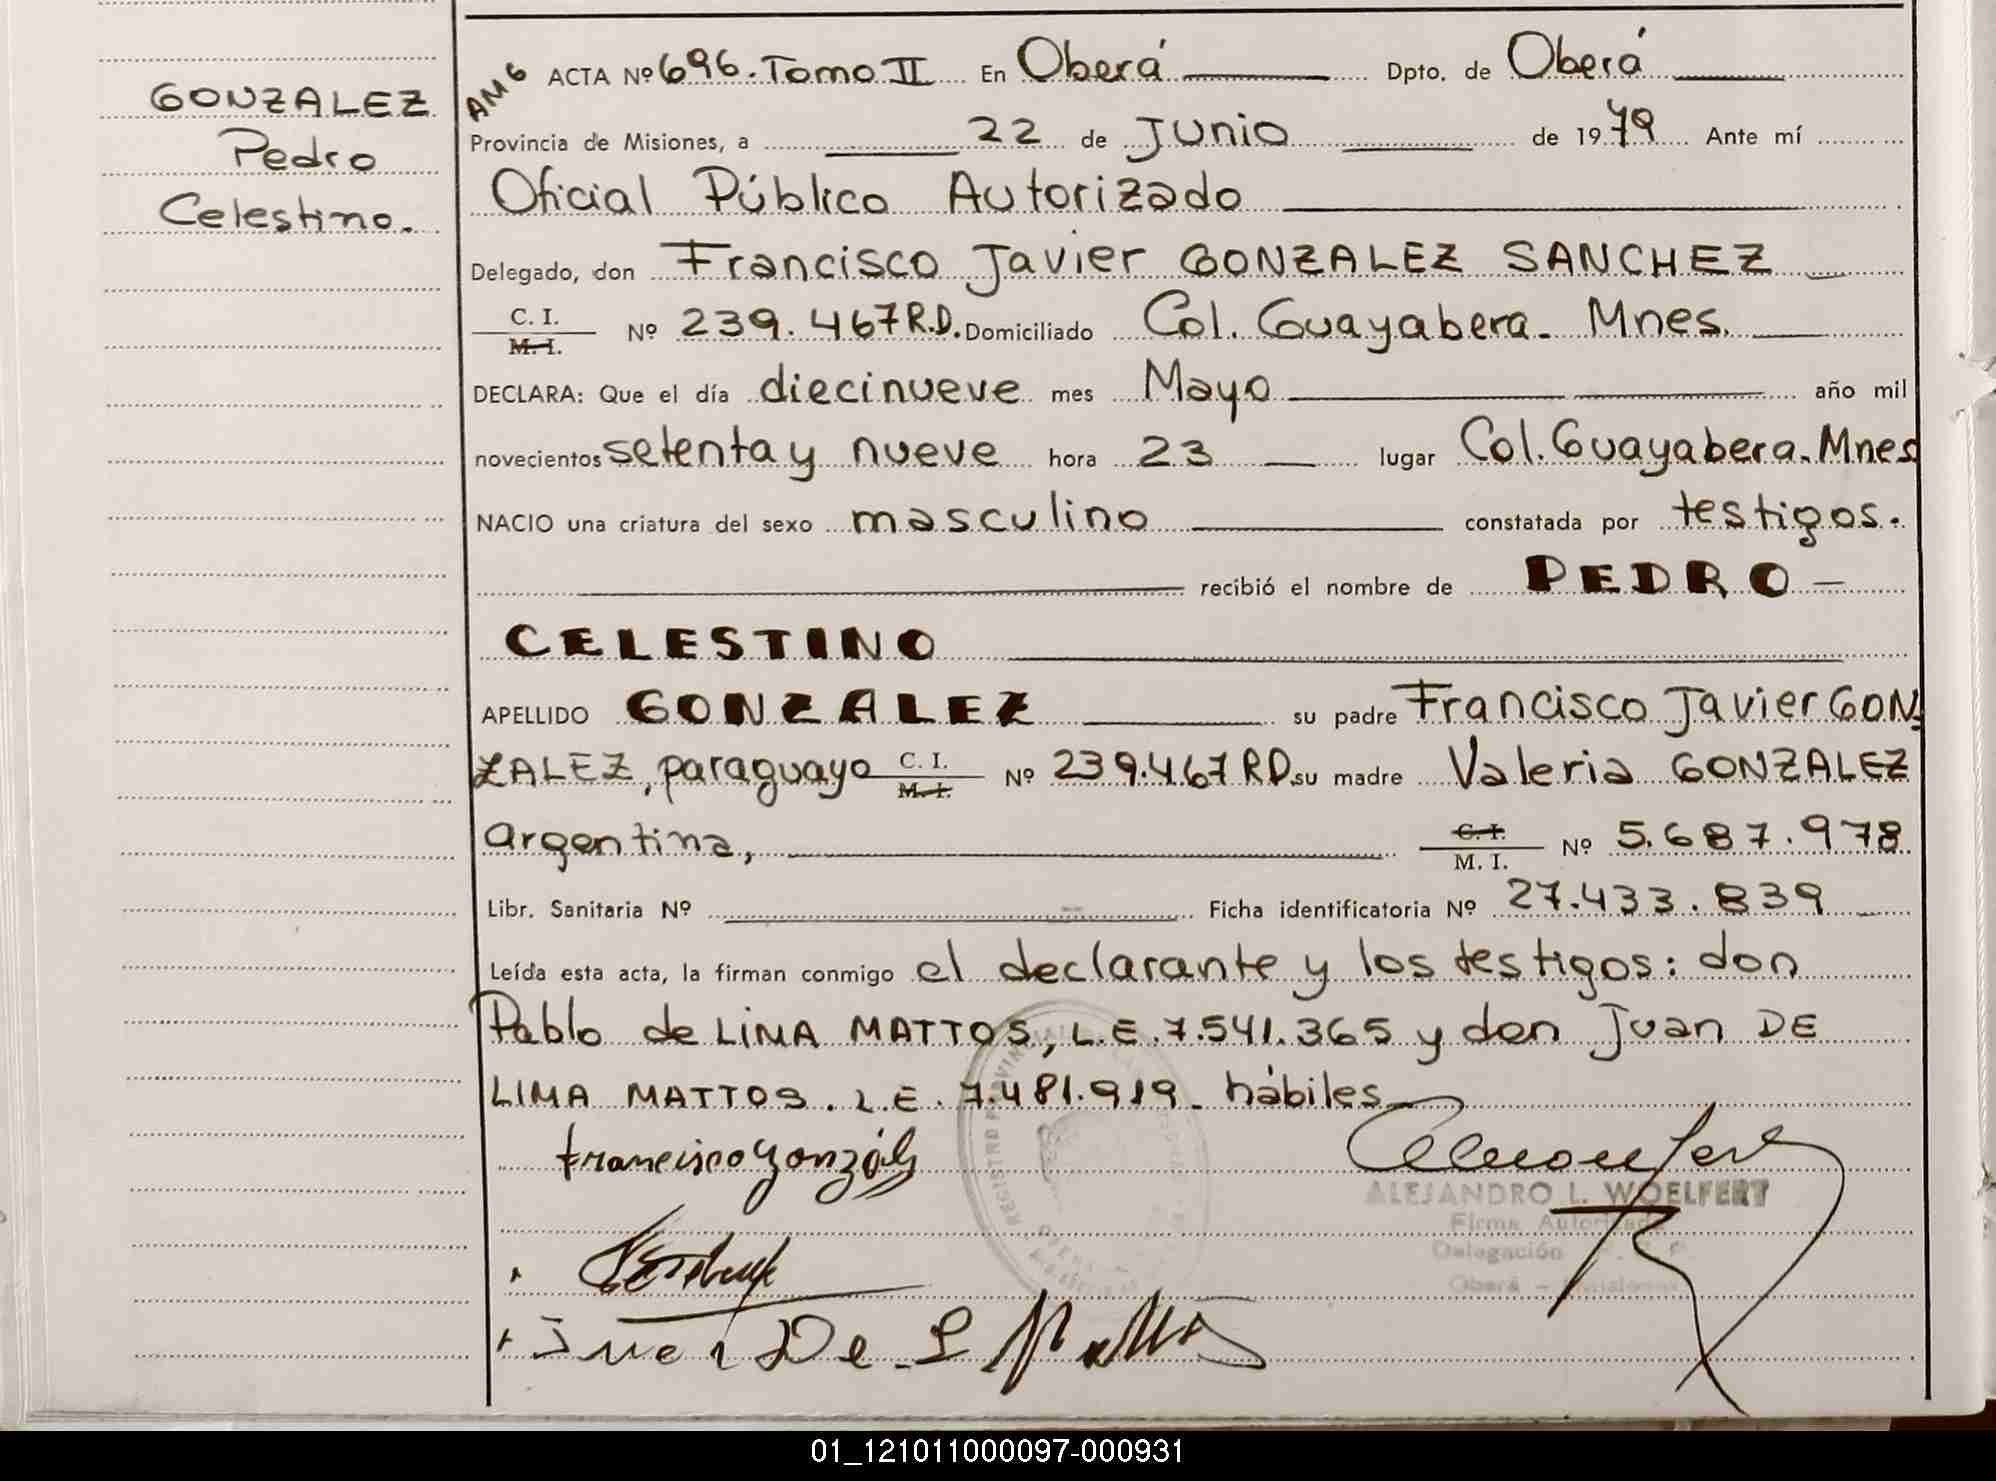 GONZALEZ
Pedro
Celestino.
AM6 ACTA Nº 696. Tomo II En Oberá Dpto. de Oberá
Provincia de Misiones, a 22 de Junio de 1979 Ante mí
Oficial Público Autorizado
Delegado, don Francisco Javier GONZALEZ SANCHEZ
C. I. / M. I. Nº 239.467 R.D. Domiciliado Col. Guayabera. Mnes.
DECLARA: Que el día diecinueve mes Mayo año mil
novecientos setenta y nueve hora 23 lugar Col. Guayabera. Mnes
NACIO una criatura del sexo masculino constatada por testigos.
recibió el nombre de PEDRO
CELESTINO
APELLIDO GONZALEZ su padre Francisco Javier GON-
ZALEZ, paraguayo C. I. / M. I. Nº 239.467 RD. su madre Valeria GONZALEZ
argentina, C. I. / M. I. Nº 5.687.978
Libr. Sanitaria Nº Ficha identificatoria Nº 27.433.839
Leída esta acta, la firman conmigo el declarante y los testigos: don
Pablo de LIMA MATTOS, L.E. 7.541.365 y don Juan DE
LIMA MATTOS. L.E. 7.481.919. hábiles
Francisco González
ALEJANDRO L. WOELFERT
Firma Autorizada
Delegación
Oberá - Misiones
REGISTRO PROVINCIAL
Juan De L Mattos
01_121011000097-000931